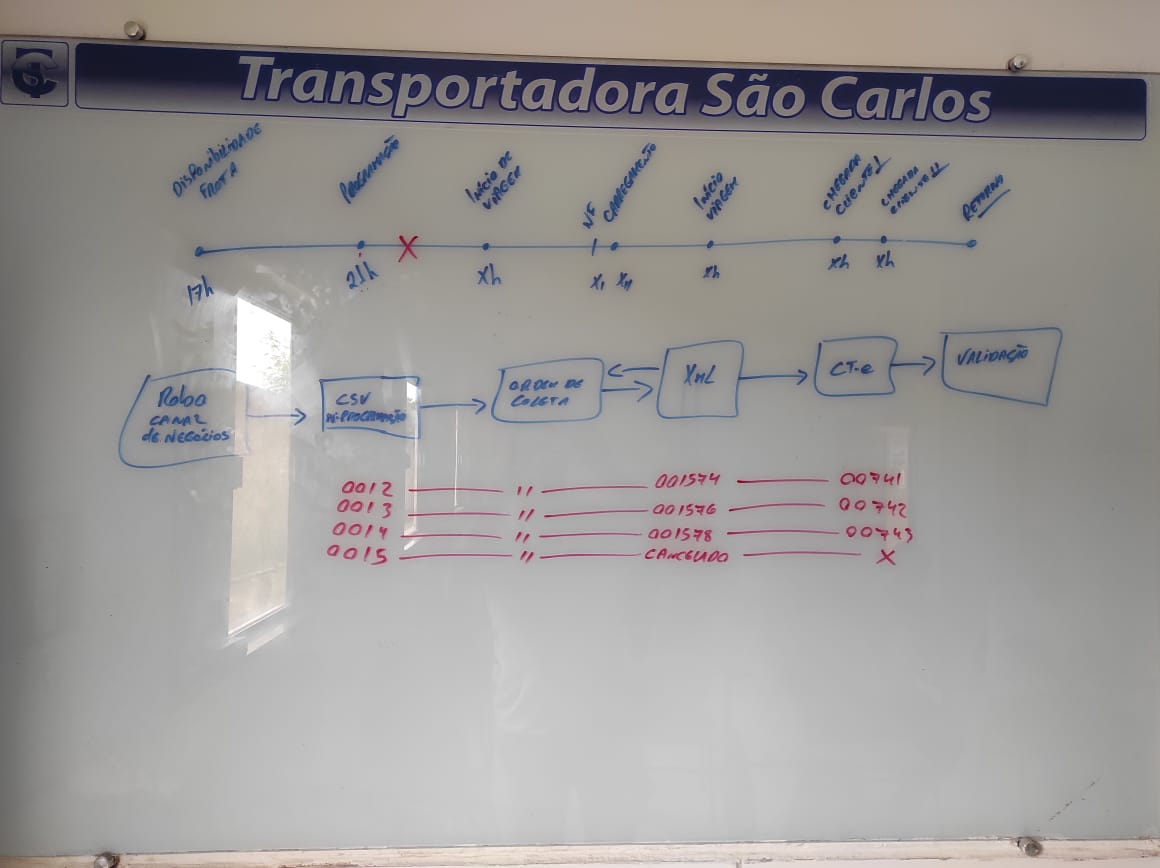 Transportadora São Carlos
DISPONIBILIDADE
FROTA
PROGRAMAÇÃO
INÍCIO DE
VIAGEM
NF
CARREGAMENTO
INÍCIO
VIAGEM
CHEGADA
CLIENTE I
CHEGADA
CLIENTE II
RETORNO
X
17h
21h
Xh
Xh
Xh
Xh
Robo
CANAL
de NEGÓCIOS
CSV
ORDEM DE
COLETA
XML
CT-e
VALIDAÇÃO
0012 " 001574 00741
0013 " 001576 00742
0014 " 001578 00743
0015 " CANCELADO X